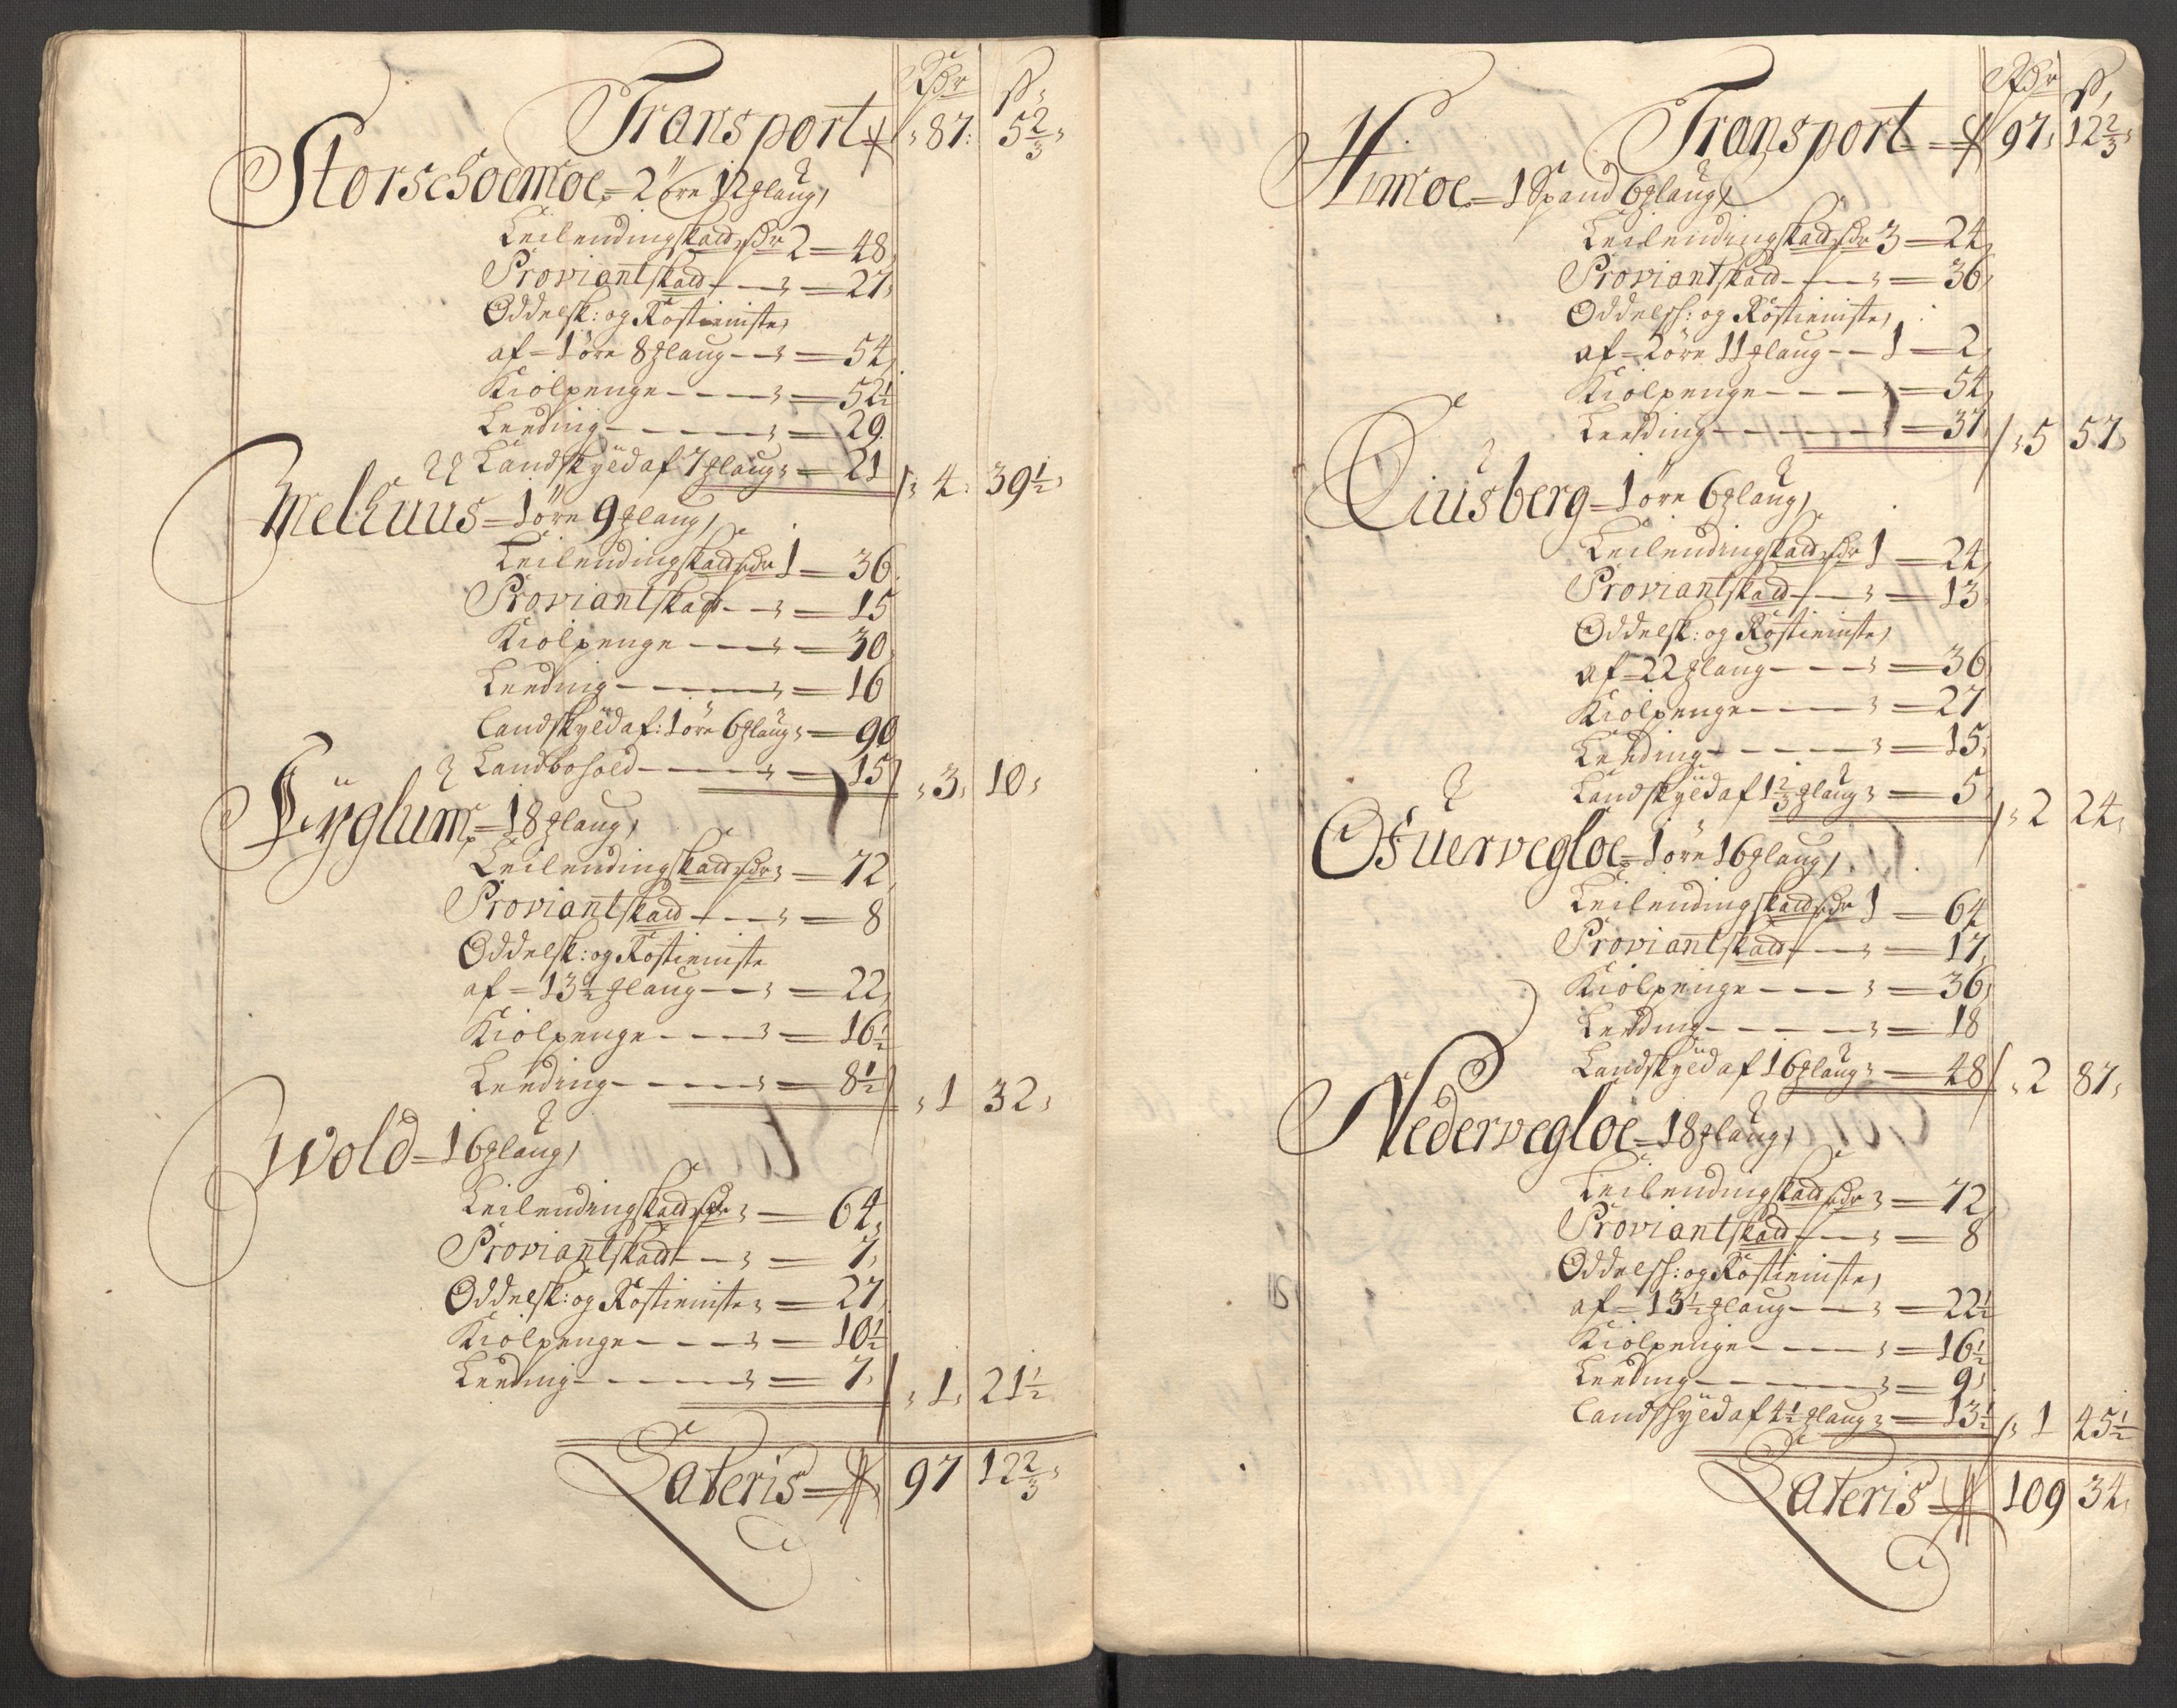 Rdr ß
Transport 87: 5 2/3
Storschoemoe = 2 øre 12 ℔laug,
Leilendingskatt rdr 2 = 48,
Proviantskatt - - = 27,
Oddelsk: og Rostieniste,
af = 1 øre 8 ℔laug - - = 54,
Kiolpenge - - - = 52 1/2
Leeding - - - - = 29.
Landskyld af 7 ℔laug = 21 4: 39 1/2,
Melhuus = 1 øre 9 ℔laug,
Leilendingskatt rdr 1 = 36.
Proviantskatt - - = 15
Kiolpenge - - - = 30,
Leeding - - - - = 16
Landskyld af: 1 øre 6 ℔laug = 90
Landbohold - - - = 15 3, 10,
Lÿglum = 18 ℔laug,
Leilendingskatt rdr = 72,
Proviantskatt - - = 8
Oddelsk: og Rostieniste
af = 13 1/2 ℔laug - - = 22,
Kiolpenge - - - = 16 1/2
Leeding - - - - = 8 1/2 1 32,
Wold = 16 ℔laug,
Leilendingskatt rdr = 64,
Proviantskatt - - = 7,
Oddelsk: og Rostieniste = 27,
Kiolpenge - - - = 10 1/2
Leeding - - - - = 7, 1, 21 1/2
Lateris = 97 12 2/3,
Rdr ß,
Transport = 97, 12 2/3,
Himoe = 1 Spand 6 ℔laug,
Leilendingskatt rdr 3 = 24,
Proviantskatt - - = 36,
Oddelsk: og Rostieniste,
af = 2 øre 11 ℔laug - - 1 = 2,
Kiolpenge - - - = 54,
Leeding - - - - = 37, 5 57,
Liusberg = 1 øre 6 ℔laug,
Leilendingskatt rdr 1 = 24,
Proviantskatt - - = 13,
Oddelsk: og Rostieniste,
af = 22 ℔laug - - - = 36,
Kiolpenge - - - = 27
Leeding - - - - = 15,
Landskyld af 1 2/3 ℔laug = 5, 2 24,
Øfuervegloe = 1 øre 16 ℔laug,
Leilendingskatt rdr 1 = 64
Proviantskatt - - = 17,
Kiolpenge - - - = 36,
Leeding - - - - = 18
Landskyld af 16 ℔laug = 48 2 87,
Nedervegloe = 18 ℔laug,
Leilendingskatt rdr = 72,
Proviantskatt - - = 8
Oddelsk: og Rostieniste,
af = 13 1/2 ℔laug - - = 22 1/2
Kiolpenge - - - = 16 1/2
Leeding - - - - = 9,
Landskyld af 4 1/2 ℔laug = 13 1/2 1 45 1/2
Lateris = 109 34,